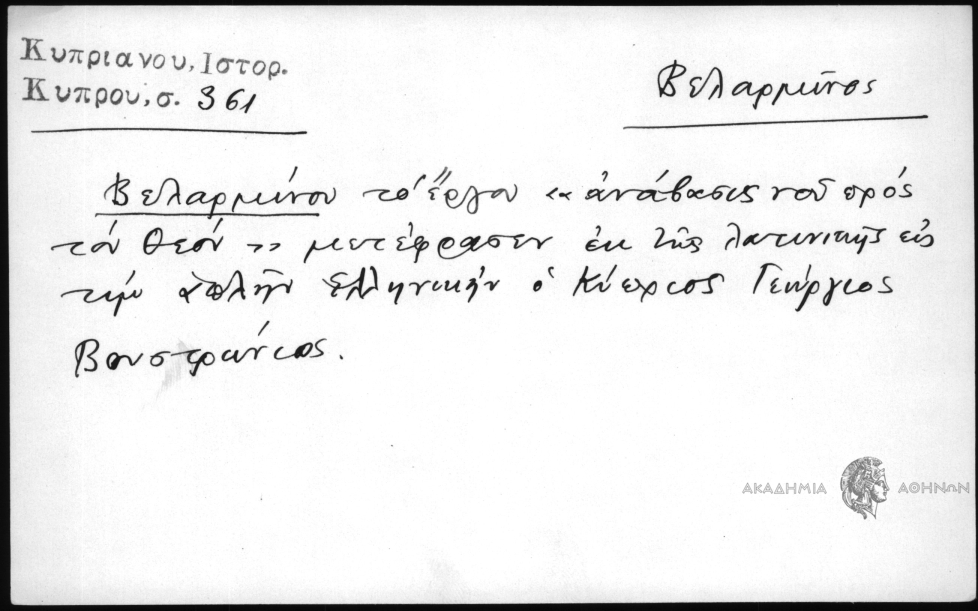 Κυπριανου, Ιστορ.
Κυπρου, σ. 361
Βελαρμῖνος
Βελαρμίνου τὸ ἔργον «ἀνάβασις νοῦ πρὸς
τὸν Θεόν» μετέφρασεν ἐκ τῆς λατινικῆς εἰς
τὴν ἁπλῆν Ἑλληνικὴν ὁ Κύπριος Γεώργιος
Βουστρώνιος.
ΑΚΑΔΗΜΙΑ ΑΘΗΝΩΝ